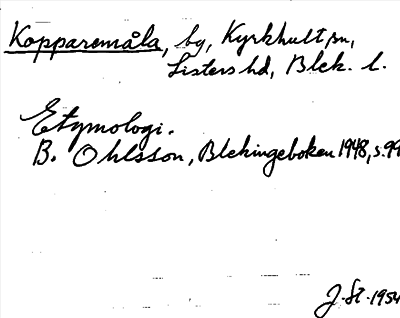 Kopparemåla, by, Kyrkhult sn,
Listers hd, Blek. l.
Etymologi.
B. Ohlsson, Blekingeboken 1948, s. 99
J. St. 1954